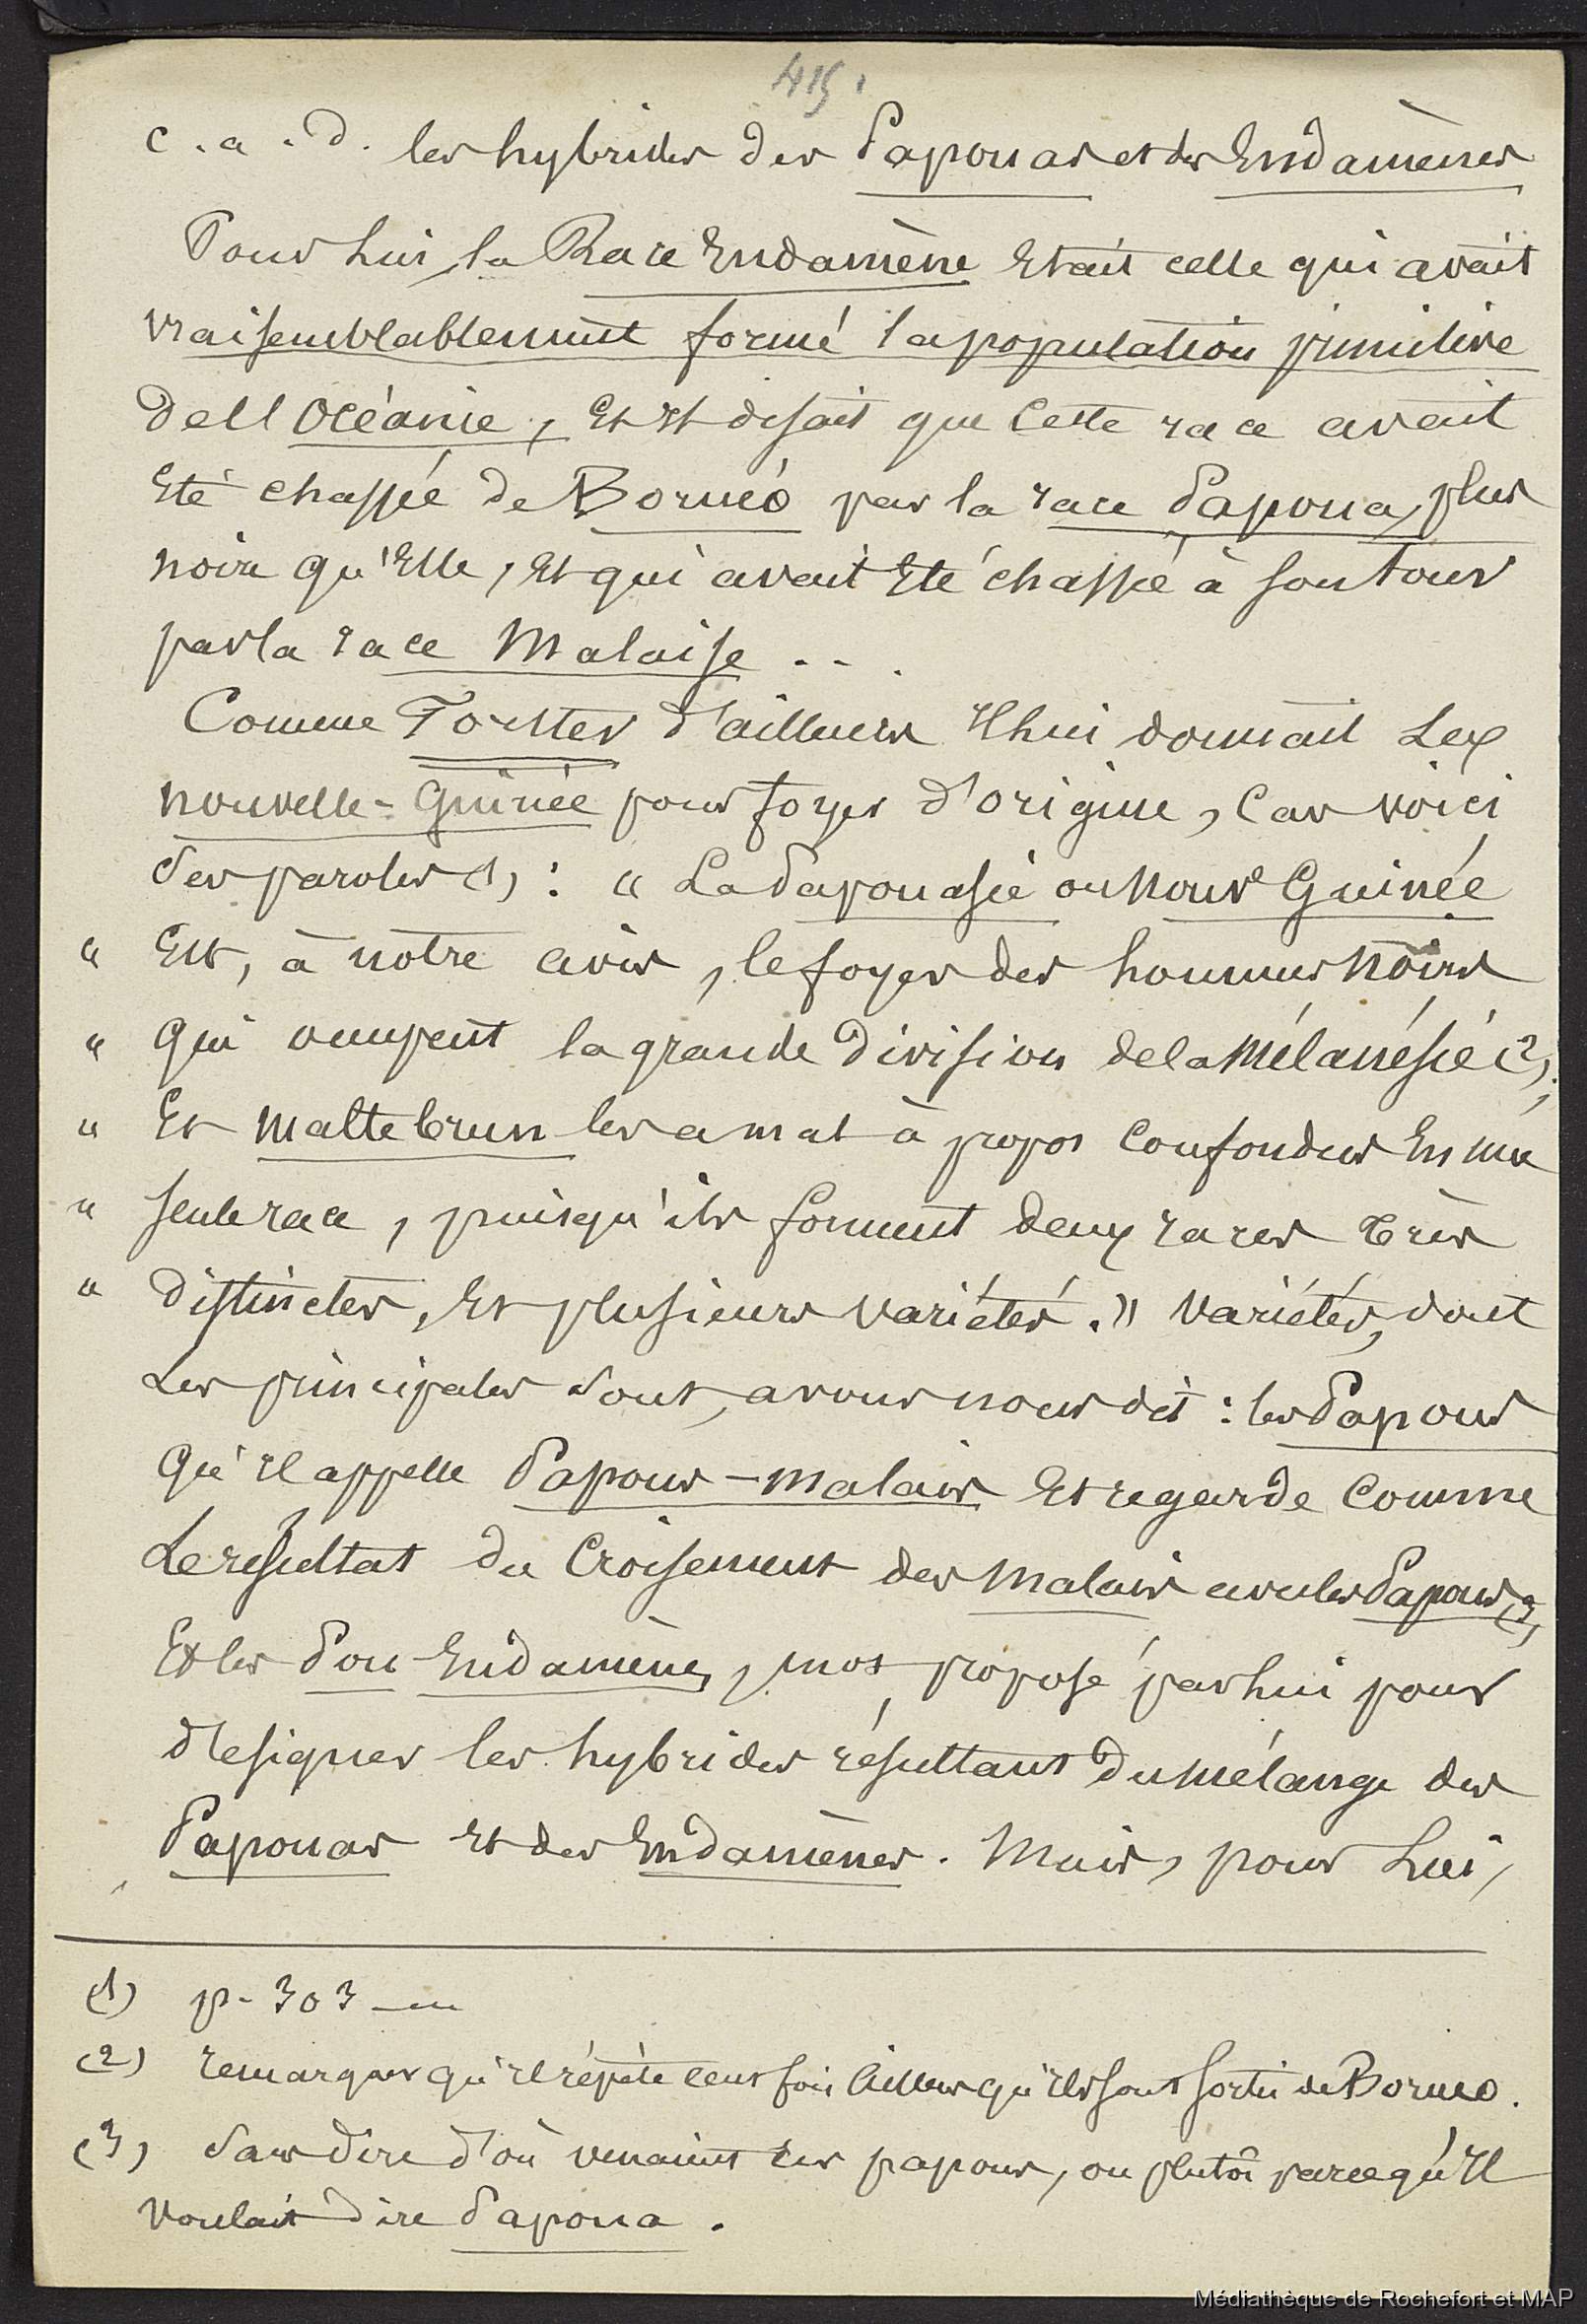 415.
c. a. d. les hybrides des Papouas et des Endamènes
Pour lui, la Race Endamène Etait celle qui avait
vraisemblablement formé la population primitive
de l'Océanie, Et Il disait que cette race avait
Eté chassée de Bornéo par la race Papoua, plus
noire qu'Elle, Et qui avait Eté chassée à son tour
par la race Malaise ...
Comme Forster d'ailleurs Il lui donnait La
nouvelle-Guinée pour foyer d'origine, Car voici
ses paroles (1) : " La Papouasie ou Nouve Guinée
" Est, à notre avis, le foyer des hommes noirs
" qui occupent la grande division de la Mélanésie (2),
" Et Maltebrun les a mal à propos confondus En une
" seule race, puisqu'ils forment deux races très
" distinctes, Et plusieurs variétés. " Variétés, dont
Les principales sont, avons nous dit : les Papous
qu'Il appelle Papous-malais Et regarde comme
Le résultat du Croisement des Malais avec les Papous (3)
Et les Pou-Endamènes, mot proposé par lui pour
designer les hybrides résultant du mélange des
Papouas Et des Endamènes. Mais, pour Lui,
(1) p. 303 —
(2) remarquer qu'Il répète cent fois Ailleurs qu'Ils sont sortis de Bornéo.
(3) Sans dire d'où venaient les papous, ou plutôt parcequ'Il
voulait dire Papoua.
Médiathèque de Rochefort et MAP